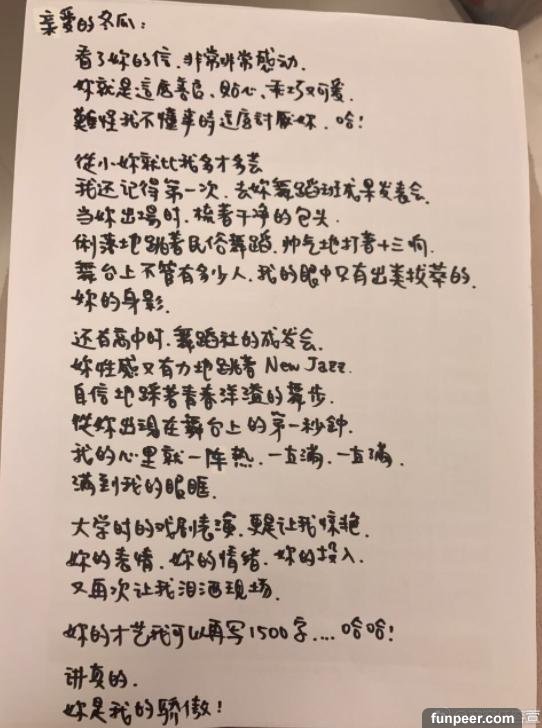 亲爱的冬瓜：
看了妳的信，非常非常感动．
妳就是這麼善良、贴心、乖巧又可爱．
難怪我不懂事時這麼討厭妳．哈！
從小妳就比我多才多芸
我还記得第一次，去妳舞蹈班成果发表会．
当妳出場时．梳著干净的包头．
俐落地跳著民俗舞蹈．帅气地打著十三响．
舞台上不管有多少人．我的眼中只有出类拔萃的．
妳的身影．
还有高中时．舞蹈社的成发会．
妳性感又有力地跳著 New Jazz.
自信地踩著青春洋溢的舞步．
從妳出現在舞台上的第一秒鐘．
我的心里就一阵热．一直满．一直满．
满到我的眼眶．
大学时的戏剧表演．更是让我惊艳．
妳的表情．妳的情緒．妳的投入．
又再次让我泪洒现场．
妳的才艺我可以再写1500字....哈哈！
讲真的．
妳是我的驕傲！
funpeer.com